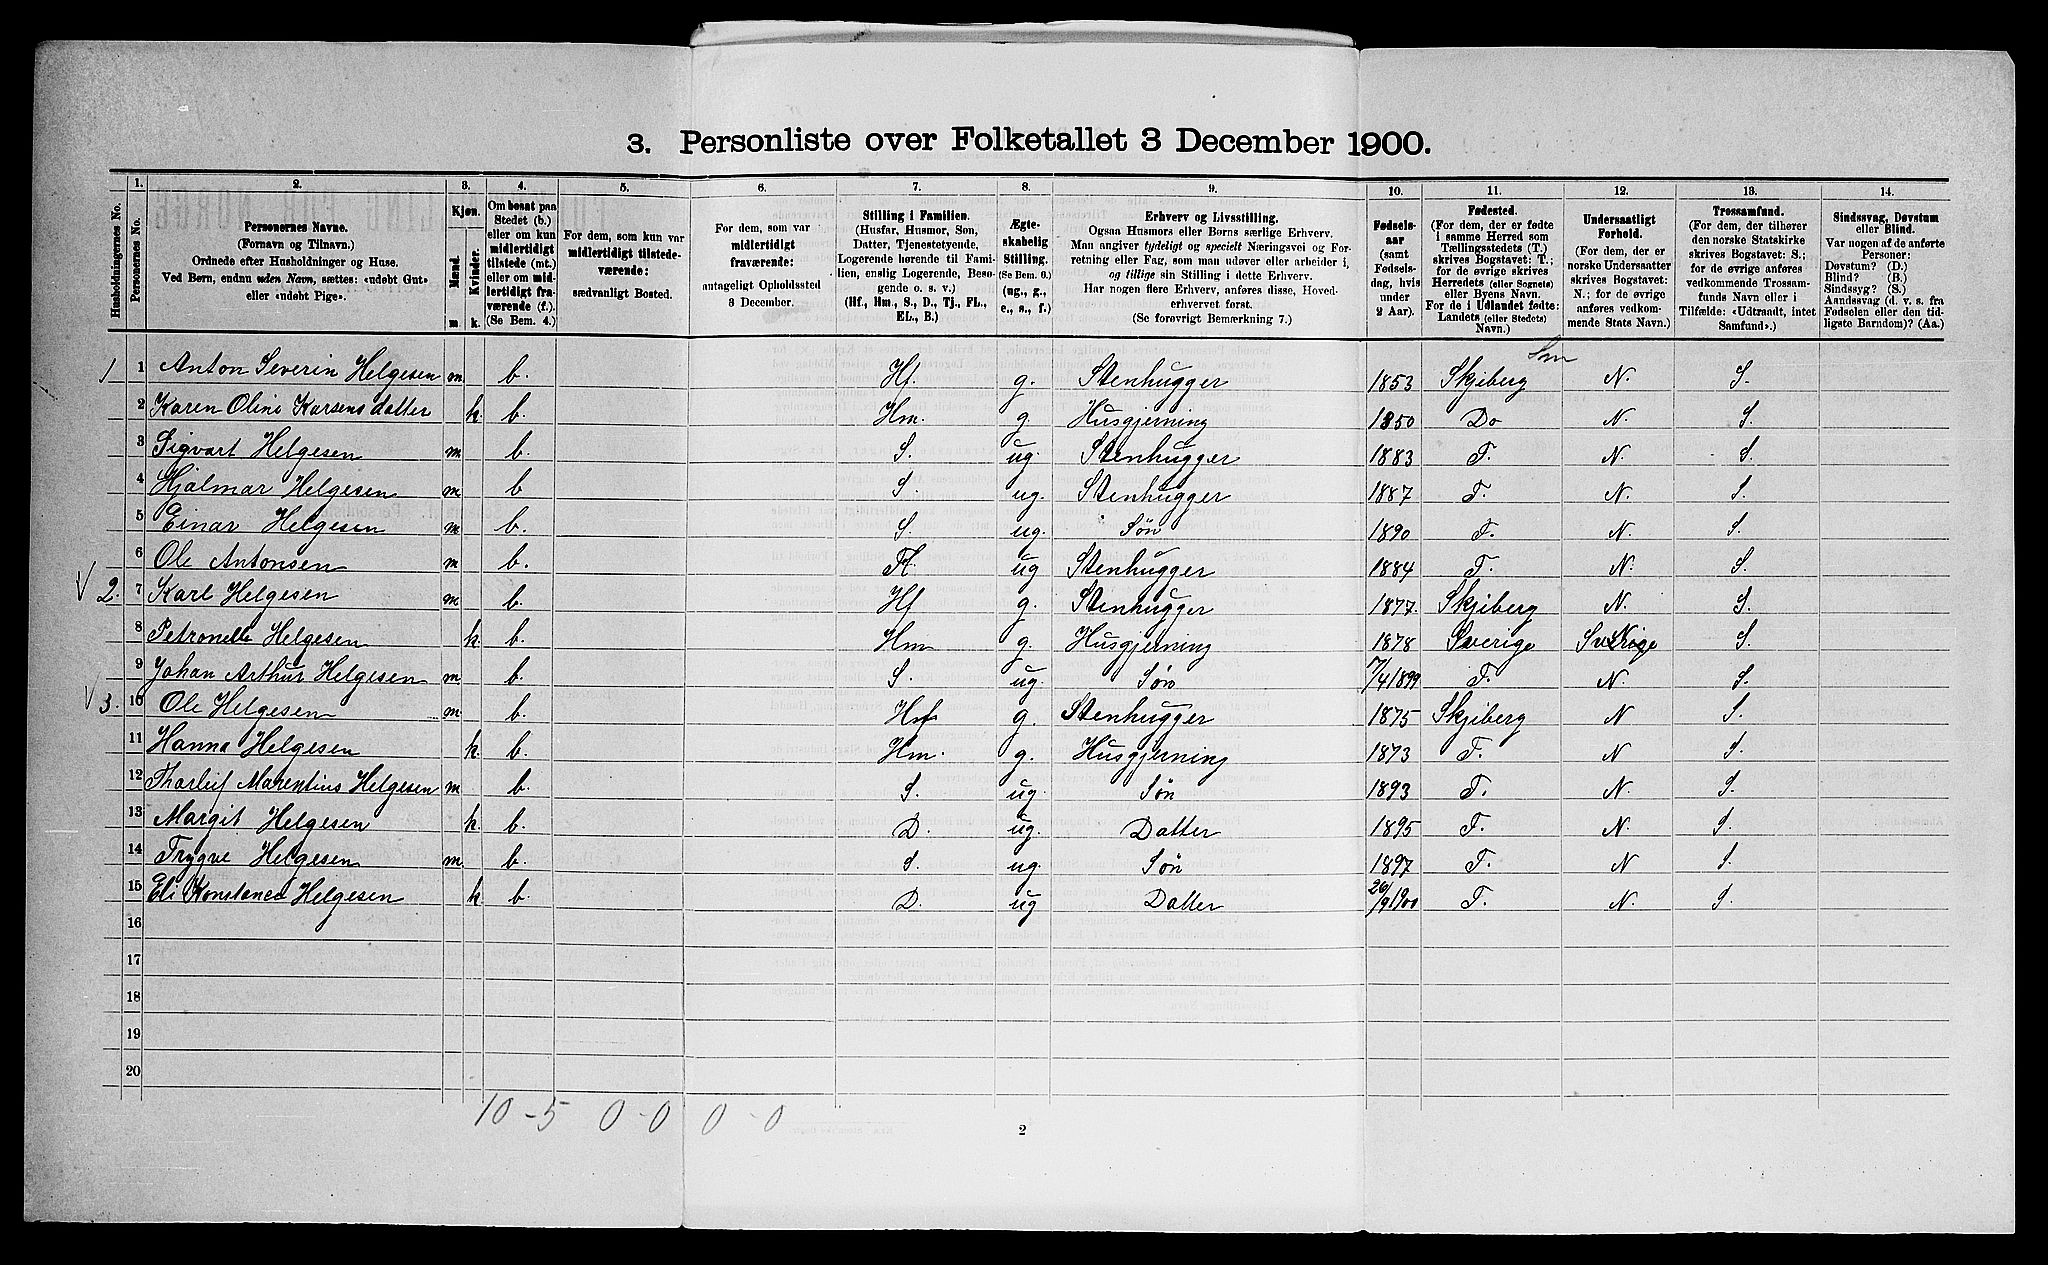 3. Personliste over Folketallet 3 December 1900.
Husholdningernes No.
1. Personernes No.
2. Personernes Navne. (Fornavn og Tilnavn.) Ordnede efter Husholdninger og Huse. Ved Børn, endnu uden Navn, sættes: «udøbt Gut» eller «udøbt Pige».
3. Kjøn. Mænd. m. Kvinder. k.
4. Om bosat paa Stedet (b.) eller om kun midlertidigt tilstede (mt.) eller om midlertidigt fraværende (f.) (Se Bem. 4.)
5. For dem, som kun var midlertidigt tilstedeværende: sædvanligt Bosted.
6. For dem, som var midlertidigt fraværende: antageligt Opholdssted 3 December.
7. Stilling i Familien. (Husfar, Husmor, Søn, Datter, Tjenestetyende, Logerende hørende til Familien, enslig Logerende, Besøgende o. s. v.) (Hf., Hm., S., D., Tj., FL., EL., B.)
8. Ægteskabelig Stilling. (Se Bem. 6.) (ug., g., e., s., f.)
9. Erhverv og Livsstilling. Ogsaa Husmors eller Børns særlige Erhverv. Man angiver tydeligt og specielt Næringsvei og Forretning eller Fag, som man udøver eller arbeider i, og tillige sin Stilling i dette Erhverv. Har nogen flere Erhverv, anføres disse, Hovederhvervet først. (Se forøvrigt Bemærkning 7.)
10. Fødselsaar (samt Fødselsdag, hvis under 2 Aar).
11. Fødested. (For dem, der er fødte i samme Herred som Tællingsstedets (T.) skrives Bogstavet: T.; for de øvrige skrives Herredets (eller Sognets) eller Byens Navn. For de i Udlandet fødte: Landets (eller Stedets) Navn.)
12. Undersaatligt Forhold. (For dem, der er norske Undersaatter skrives Bogstavet: N.; for de øvrige anføres vedkommende Stats Navn.)
13. Trossamfund. (For dem, der tilhører den norske Statskirke skrives Bogstavet: S.; for de øvrige anføres vedkommende Trossamfunds Navn eller i Tilfælde: «Udtraadt, intet Samfund».)
14. Sindssvag, Døvstum eller Blind. Var nogen af de anførte Personer: Døvstum? (D.) Blind? (B.) Sindssyg? (S.) Aandssvag (d. v. s. fra Fødselen eller den tidligste Barndom)? (Aa.)
1 1 Anton Severin Helgesen m. b. Hf. g. Stenhugger 1853 Skjeberg N. S.
2 Karen Oline Karsensdatter k. b. Hm. g. Husgjerning 1850 Do N. S.
3 Sigvart Helgesen m b. S. ug. Stenhugger 1883 T. N. S.
4 Hjalmar Helgesen m b S. ug. Stenhugger 1887 T. N. S.
5 Einar Helgesen m b. S. ug. Søn 1890 T. N. S.
6 Ole Antonsen m b. Fl. ug Stenhugger 1884 T. N. S.
√ 2. 7 Karl Helgesen m b. Hf g. Stenhugger 1877. Skjeberg N. S.
8 Petronelle Helgesen k. b. Hm g. Husgjerning 1878 Sverige Sverige S.
9 Johan Arthur Helgesen m. b. S. ug. Søn 7/4 1899 T. N. S.
√ 3. 10 Ole Helgesen m. b. Hf g. Stenhugger 1875 Skjeberg N S.
11 Hanna Helgesen k. b. Hm. g. Husgjerning 1873 T. N S.
12 Thorleif Marentius Helgesen m b. S. ug. Søn 1893 T. N. S.
13 Margit Helgesen k. b. D. ug. Datter 1895 T. N. S.
14 Trygve Helgesen m. b. S. ug. Søn 1897 T. N S.
15 Eli Konstance Helgesen k. b. D. ug Datter 26/9 1900 T. N. S.
16
17
18
19
20
10 - 5 0 - 0 0 - 0
2